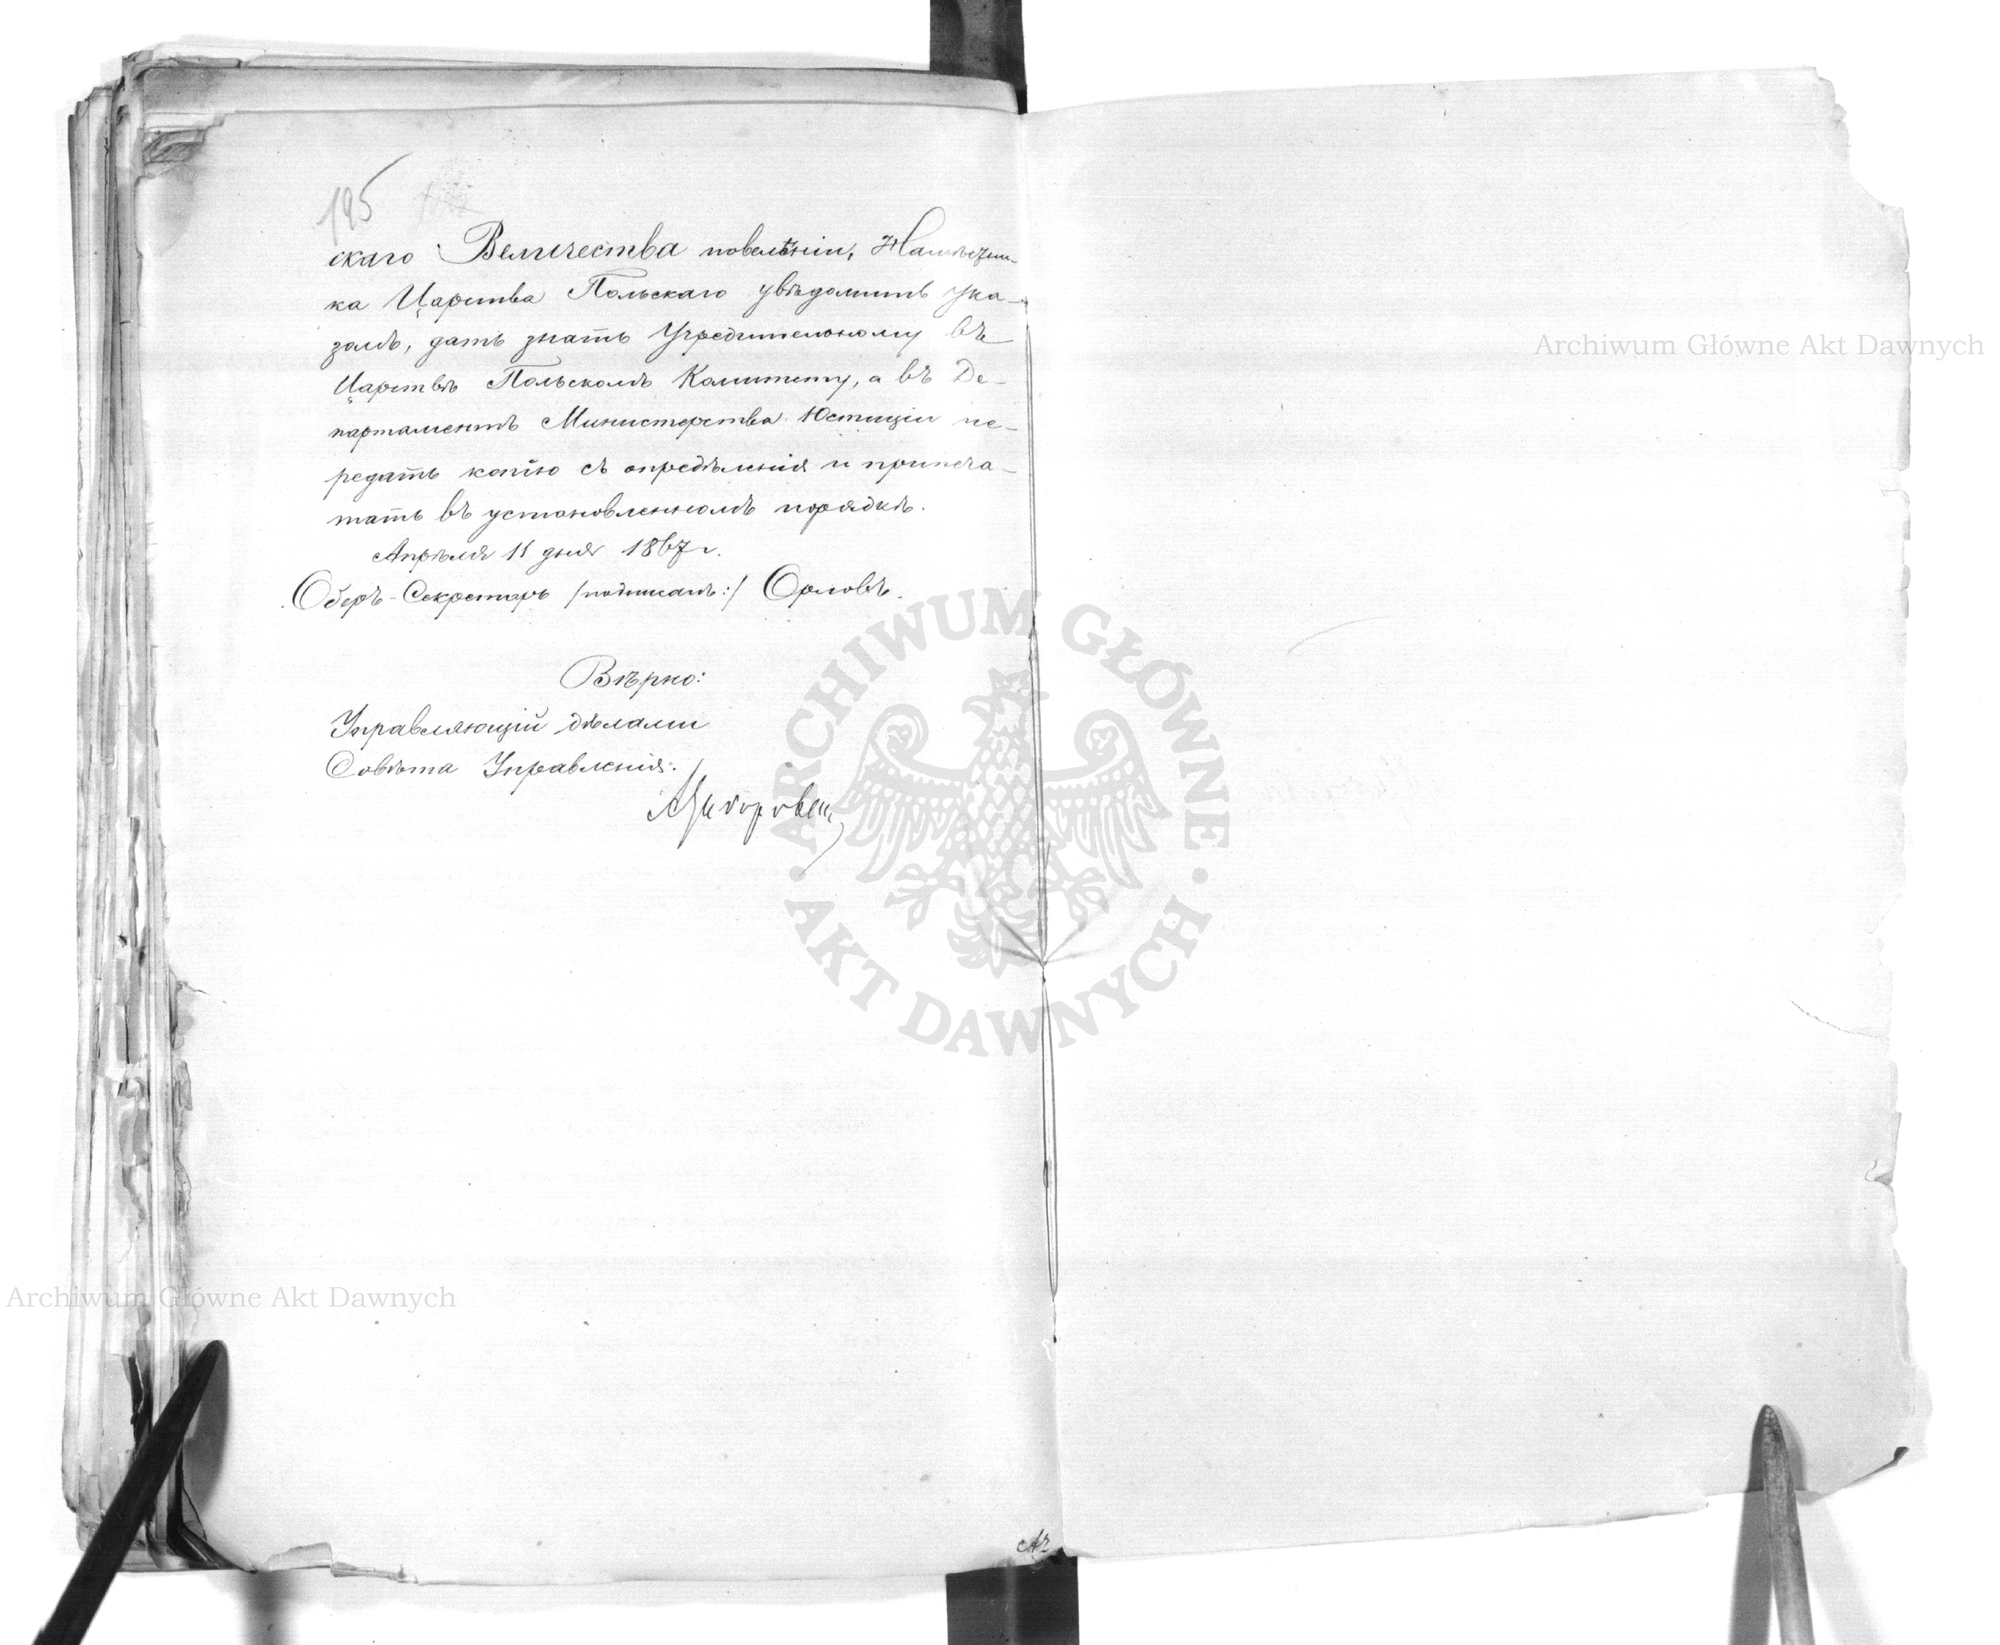 195
скаго Величества повелѣніи, Намѣстни-
ка Царства Польскаго увѣдомить ука-
зомъ, дать знать Учредительному въ
Царствѣ Польскомъ Комитету, а въ Де-
партаментъ Министерства Юстиціи пе-
редать копію съ опредѣленія и припеча-
тать въ установленномъ порядкѣ.
Апрѣля 11 дня 1867 г.
Оберъ-Секретарь /подписалъ:/ Орловъ.
Вѣрно:
Управляющій дѣлами
Совѣта Управленія:
Archiwum Główne Akt Dawnych
ARCHIWUM GŁÓWNE
AKT DAWNYCH
Archiwum Główne Akt Dawnych